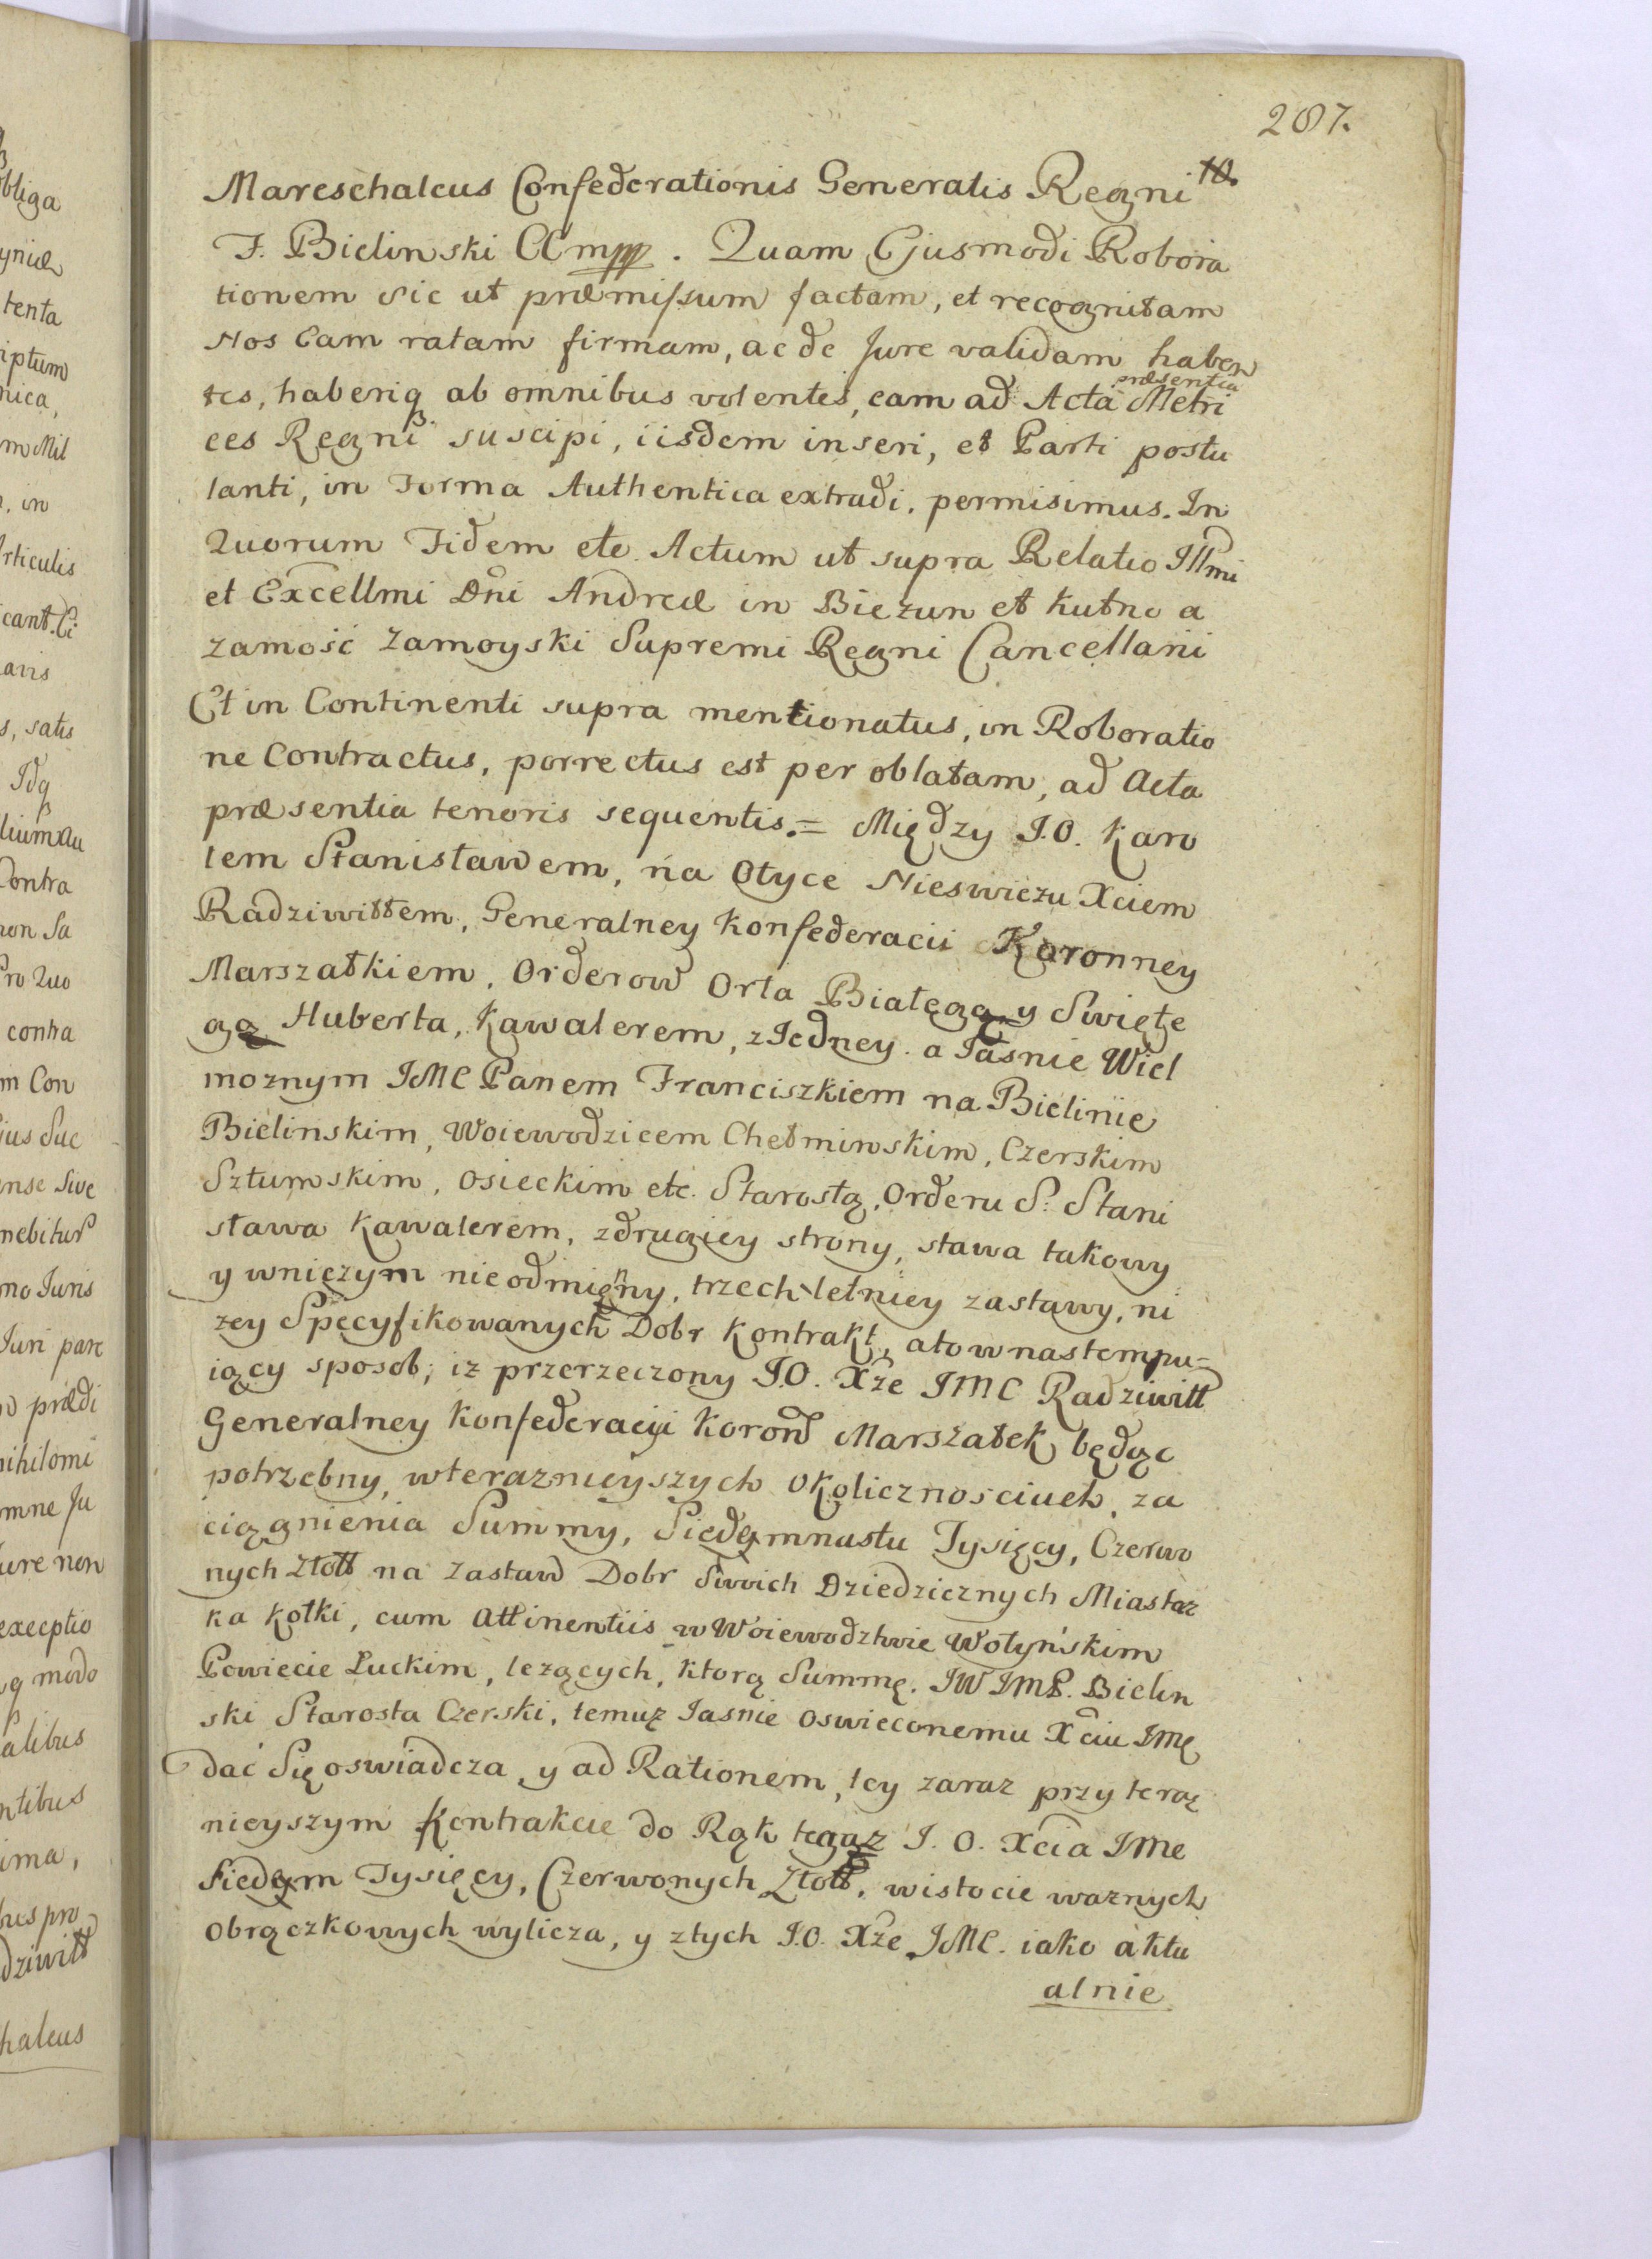 287.
Mareschalcus Confederationis Generalis Regni
F. Bielinski CCmpp. Quam Ejusmodi Robora
tionem sic ut præmissum factam, et recognitam
Nos Eam ratam firmam, ac de Jure validam haben
tes, haberiq ab omnibus volentes, eam ad Acta præsentia Metri
ces Regni suscipi, iisdem inseri, et Parti postu
lanti, in Forma Authentica extradi, permisimus. In
Quorum Fidem etc. Actum ut supra Relatio Illmi
et Excellmi Dni Andreæ in Biezun et Kutno a
Zamość Zamoyski Supremi Regni Cancellarii
Et in Continenti supra mentionatus, in Roboratio
ne Contractus, porrectus est per oblatam, ad Acta
præsentia tenoris sequentis.= Między J.O. Karo
lem Stanisławem, na Ołyce Nieswiezu Xciem
Radziwiłłem, Generalney Konfederacii Koronney
Marszałkiem, Orderow Orła Białego y Swięte
go Huberta, Kawalerem, z Jedney. a Jasnie Wiel
moznym JMC Panem Franciszkiem na Bielinie
Bielinskim, Woiewodzicem Chełminskim, Czerskim
Sztumskim, Osieckim etc. Starostą, Orderu S. Stani
sława Kawalerem, zdrugiey strony, stawa takowy
y wniczym nieodmięny, trzech letniey zastawy, ni
zey Specyfikowanych Dobr Kontrakt, ato wnastempu=
iący sposob; iz przerzeczony J.O. Xże JMC Radziwiłł
Generalney Konfederacyi Koron Marszałek będąc
potrzebny, wteraznieyszych okolicznosciach, za
ciągnienia Summy, Siedemnastu Tysięcy, Czerwo
nych Złotł na Zastaw Dobr Swoich Dziedzicznych Miastecz
ka Kołki, cum Attinentiis w Woiewodztwie Wołyńskim
Powiecie Łuckim, lezących, ktorą Summę. JW JMP. Bielin
ski Starosta Czerski, temuz Jasnie oswieconemu Xciu JMc
dać Się oswiadcza, y ad Rationem, iey zaraz przy teraz
nieyszym Kontrakcie do Rąk tegoz J. O. Xcia JMc
Siedem Tysięcy, Czerwonych Złotł, wistocie waznych
Obrączkowych wylicza, y ztych J.O. Xże JMC. iako aktu
alnie